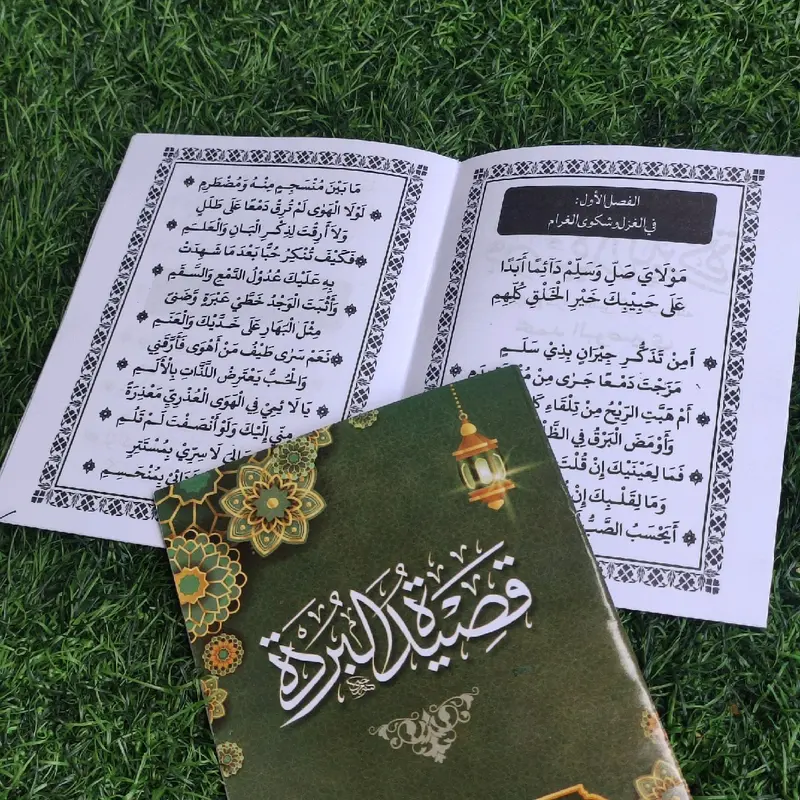 الفصل الأول:
في الغزل وشكوى الغرام
مَوْلَايَ صَلِّ وَسَلِّمْ دَآئِمًا أَبَدًا
عَلَى حَبِيْبِكَ خَيْرِ الْخَلْقِ كُلِّهِمِ
أَمِنْ تَذَكُّرِ جِيْرَانٍ بِذِيْ سَلَمِ
مَزَجْتَ دَمْعًا جَرَى مِنْ
أَمْ هَبَّتِ الرِّيْحُ مِنْ تِلْقَاءِ
وَأَوْمَضَ الْبَرْقُ فِي
فَمَا لِعَيْنَيْكَ إِنْ قُلْتَ
وَمَا لِقَلْبِكَ إِنْ
أَيَحْسَبُ الصَّبُّ
مَا بَيْنَ مُنْسَجِمٍ مِنْهُ وَمُضْطَرِمِ
لَوْلَا الْهَوَى لَمْ تُرِقْ دَمْعًا عَلَى طَلَلٍ
وَلَا أَرِقْتَ لِذِكْرِ الْبَانِ وَالْعَلَمِ
فَكَيْفَ تُنْكِرُ حُبًّا بَعْدَ مَا شَهِدَتْ
بِهِ عَلَيْكَ عُدُوْلُ الدَّمْعِ وَالسَّقَمِ
وَأَثْبَتَ الْوَجْدُ خَطَّيْ عَبْرَةٍ وَضَنًى
مِثْلَ الْبَهَارِ عَلَى خَدَّيْكَ وَالْعَنَمِ
نَعَمْ سَرَى طَيْفُ مَنْ أَهْوَى فَأَرَّقَنِي
وَالْحُبُّ يَعْتَرِضُ اللَّذَّاتِ بِالْأَلَمِ
يَا لَا ئِمِيْ فِي الْهَوَى الْعُذْرِيِّ مَعْذِرَةً
مِنِّي إِلَيْكَ وَلَوْ أَنْصَفْتَ لَمْ تَلُمِ
لَا سِرِّيْ بِمُسْتَتِرٍ
بِمُنْحَسِمِ
قَصِيْدَةُ الْبُرْدَة